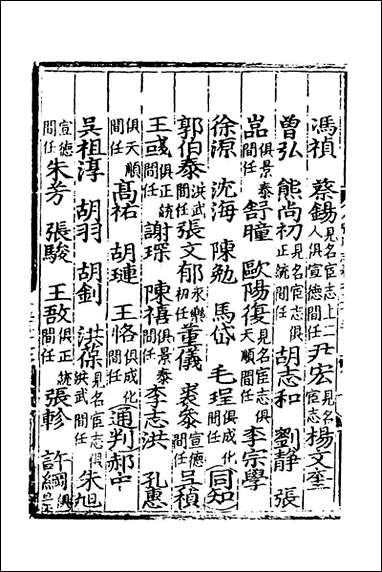 馮禎 蔡錫見名宦志上二人俱宣德間任尹宏見名宦志楊文奎
曽弘 熊尚初見名宦志俱正統間任胡志和 劉靜 張
嵓俱景泰間任舒曈 歐陽復見名宦志俱天順間任李宗學
徐源 沈海 陳勉 馬岱 毛珵俱成化間任同知
郭伯泰洪武間任張文郁永樂初任董儀 裘㤗宣德間任吴禎
王彧俱正統間任謝琛 陳禧俱景泰間任李志洪 孔惠
俱天順間任髙祐 胡璉 王恪俱成化間任通判郝中
吳祖淳 胡羽 胡釗 洪葆見名宦志俱洪武間任朱旭
宣德間任朱芳 張駿 王敔俱正統間任張軫 許綱